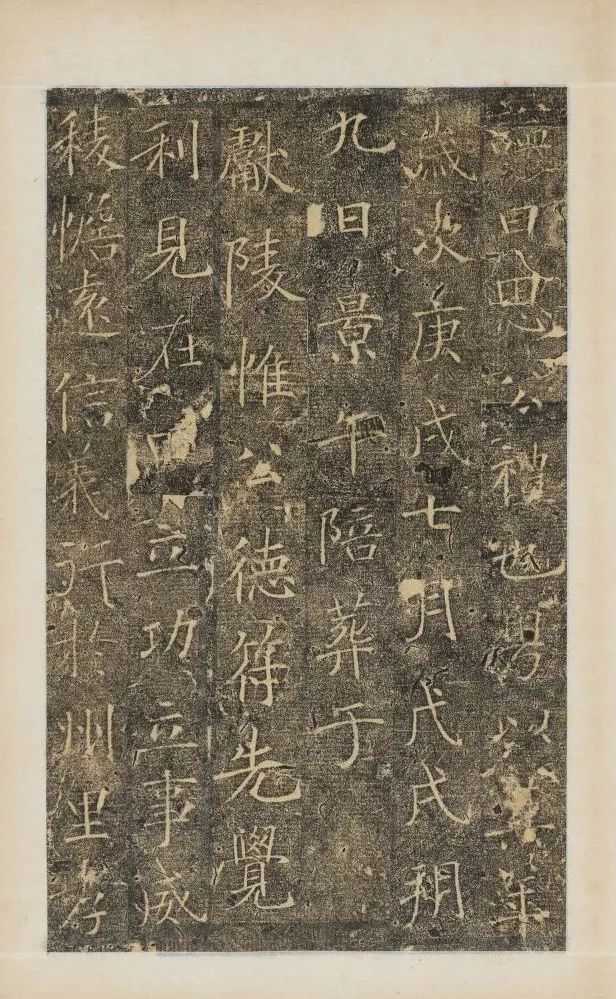 謚曰思公禮也粤以其年
歲次庚戌七月戊戌朔
九日景午陪葬于
獻陵惟公德符先覺
利見在田立功立事威
稜憺遠信義行於州里孝